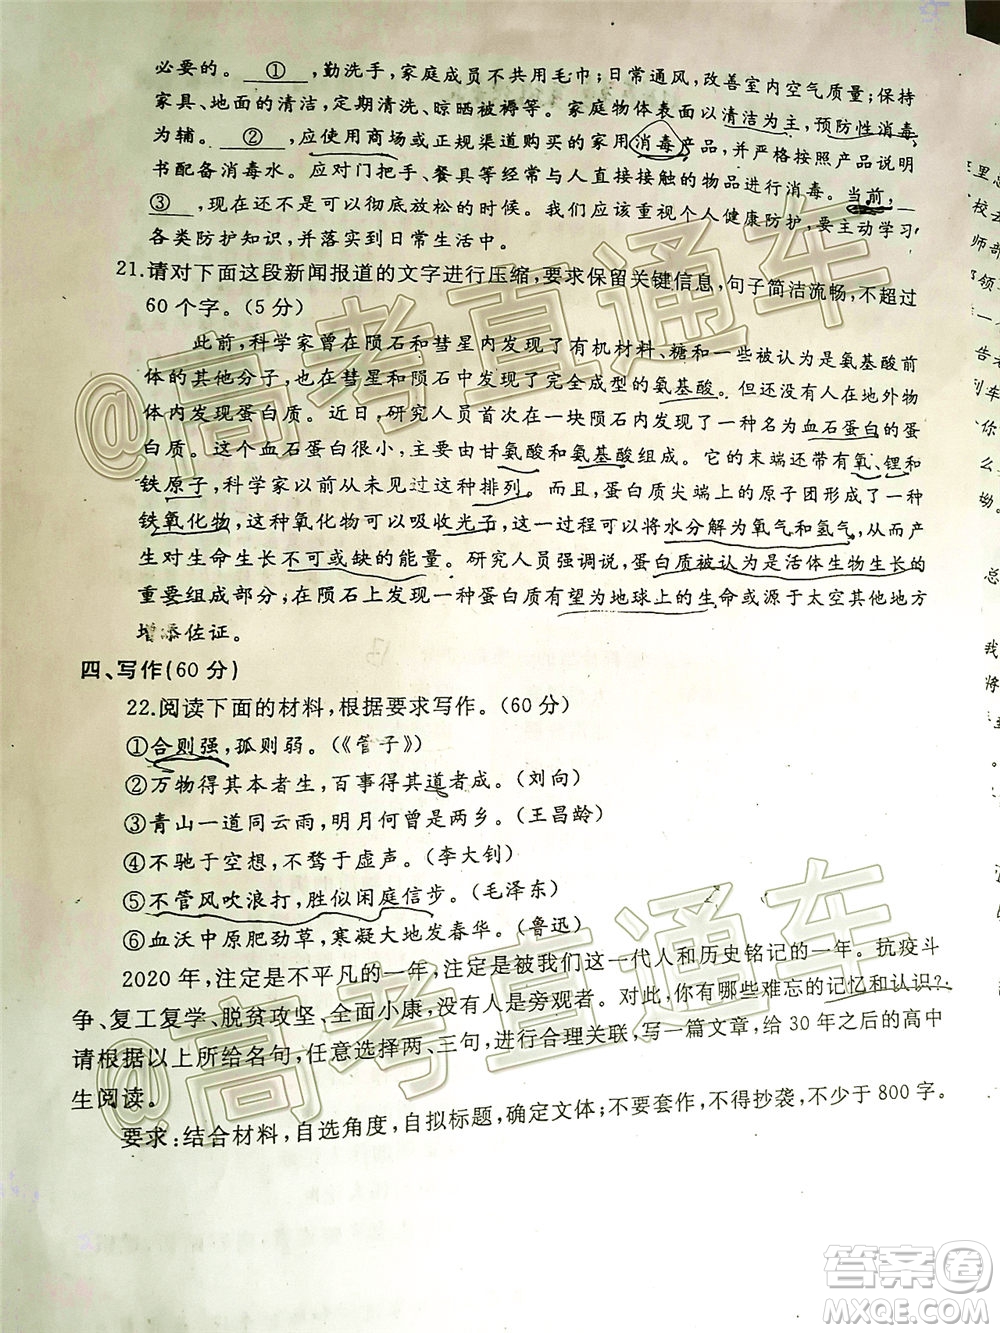 必要的。 ① ,勤洗手,家庭成员不共用毛巾;日常通风,改善室内空气质量;保持
家具、地面的清洁,定期清洗、晾晒被褥等。家庭物体表面以清洁为主,预防性消毒
为辅。 ② ,应使用商场或正规渠道购买的家用消毒产品,并严格按照产品说明
书配备消毒水。应对门把手、餐具等经常与人直接接触的物品进行消毒。当前,
③ ,现在还不是可以彻底放松的时候。我们应该重视个人健康防护,要主动学习
各类防护知识,并落实到日常生活中。
21.请对下面这段新闻报道的文字进行压缩,要求保留关键信息,句子简洁流畅,不超过
60个字。(5分)
此前,科学家曾在陨石和彗星内发现了有机材料、糖和一些被认为是氨基酸前
体的其他分子,在彗星和陨石中发现了完全成型的氨基酸。但还没有在地外物
体内发现蛋白质。近日,研究人员首次在一块陨石内发现了一种名为血石蛋白的蛋
白质。这个血石蛋白很小,主要由甘氨酸和氨基酸组成。它的末端还带有氧、锂和
铁原子,科学家以前从未见过这种排列。而且,蛋白质尖端上的原子团形成了一种
铁氧化物,这种氧化物可以吸收光子,这一过程可以将水分解为氧气和氢气,从而产
生对生命生长不可或缺的能量。研究人员强调说,蛋白质被认为是活体生物生长的
重要组成部分,在陨石上发现一种蛋白质有望为地球上的生命或源于太空其他地方
增添佐证。
四、写作(60分)
22.阅读下面的材料,根据要求写作。(60分)
①合则强,孤则弱。(《管子》)
②万物得其本者生,百事得其道者成。(刘向)
③青山一道同云雨,明月何曾是两乡。(王昌龄)
④不驰于空想,不骛于虚声。(李大钊)
⑤不管风吹浪打,胜似闲庭信步。(毛泽东)
⑥血沃中原肥劲草,寒凝大地发春华。(鲁迅)
2020年,注定是不平凡的一年,注定是被我们这一代人和历史铭记的一年。抗疫斗
争、复工复学、脱贫攻坚、全面小康,没有人是旁观者。对此,你有哪些难忘的记忆和认识?
请根据以上所给名句,任意选择两、三句,进行合理关联,写一篇文章,给30年之后的高中
生阅读。
要求:结合材料,自选角度,自拟标题,确定文体;不要套作,不得抄袭,不少于800字。
@高考直通车
@高考直通车
答案圈
MXQE.COM